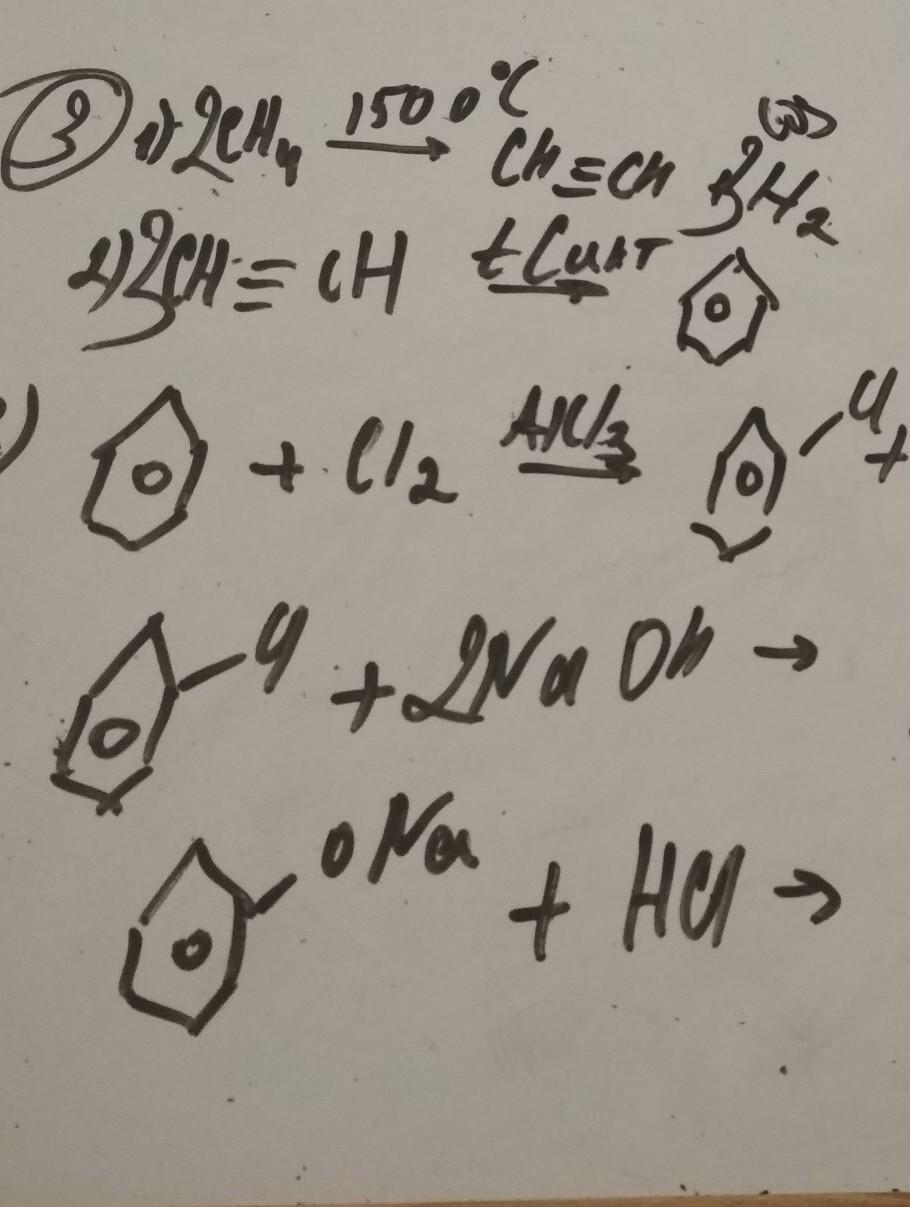 3 1) 2CH4 1500°C CH≡CH 3H2
2) 3CH≡CH t Cакт
+ Cl2 AlCl3 Cl +
Cl + 2NaOH →
ONa + HCl →